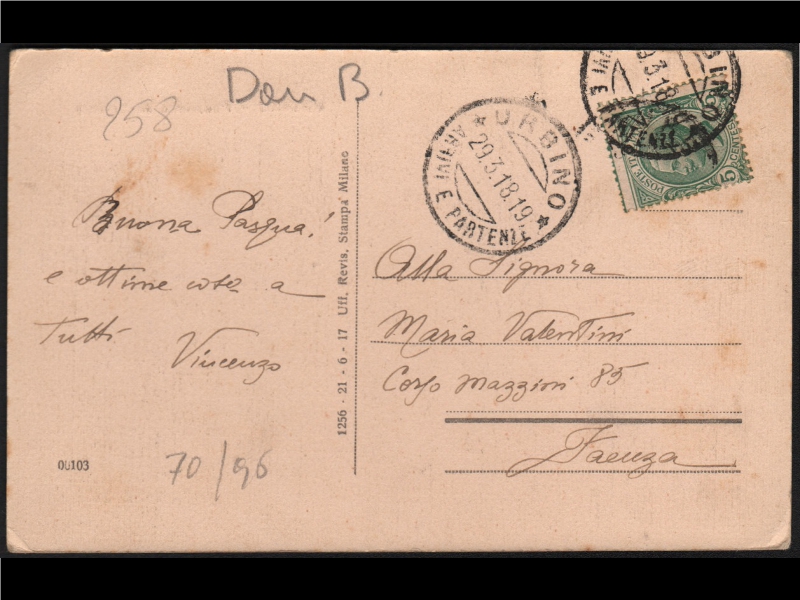 258
Don B.
Buona Pasqua!
e ottime cose a
Tutti
Vincenzo
00103
70/96
1256 - 21 - 6 - 17 Uff. Revis. Stampa Milano
URBINO
ARRIVI E PARTENZE
29.3.18.19
ARRIVI E PARTENZE
POSTE
5 CENTES
Alla Signora
Maria Valentini
Corso Mazzini 85
Faenza